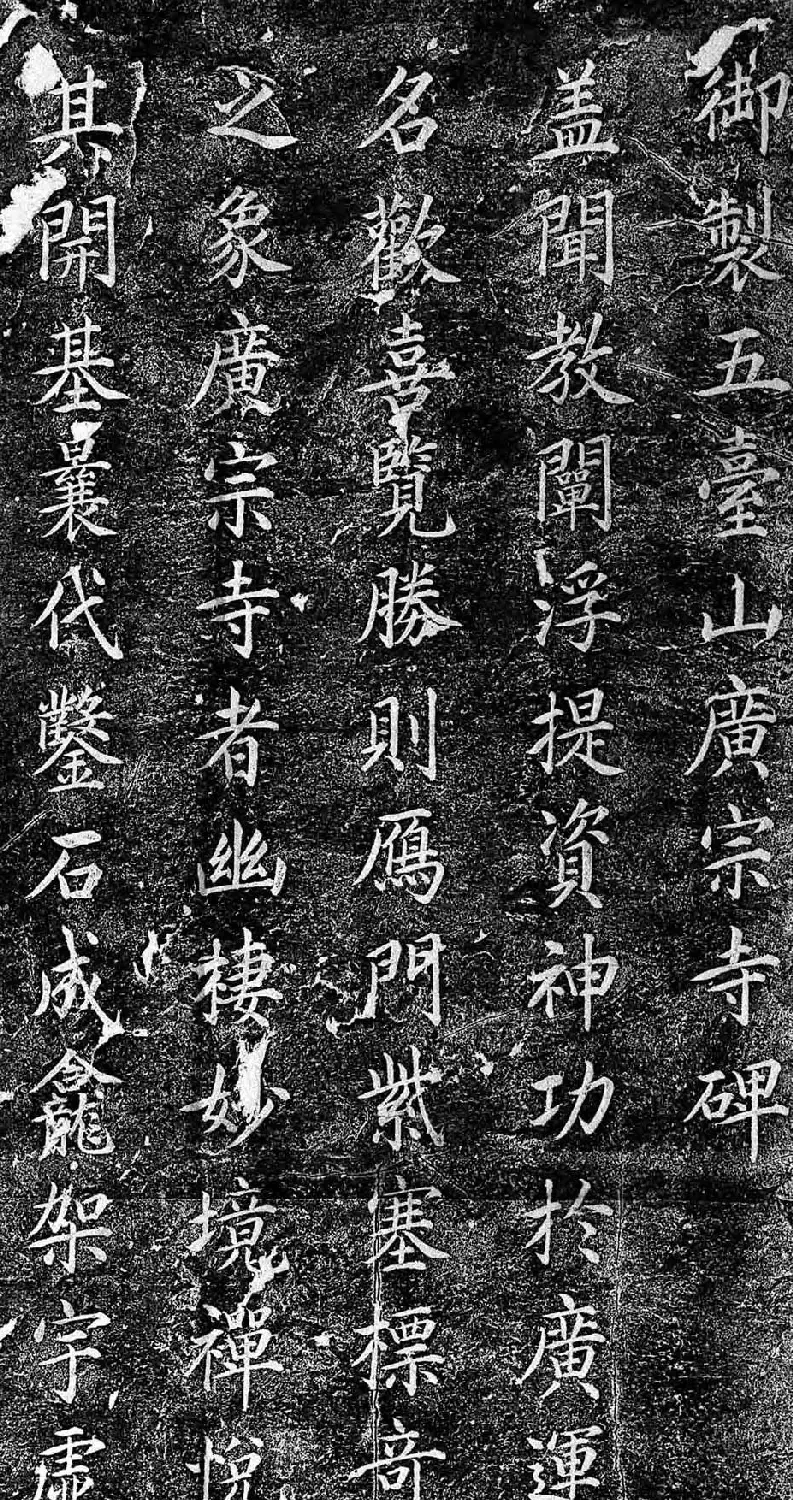 御製五臺山廣宗寺碑
盖聞教闡浮提資神功於廣運
名歡喜覽勝則鴈門紫塞標竒
之象廣宗寺者幽棲妙境禪悅
其開基曩代鑿石成龕架宇虛